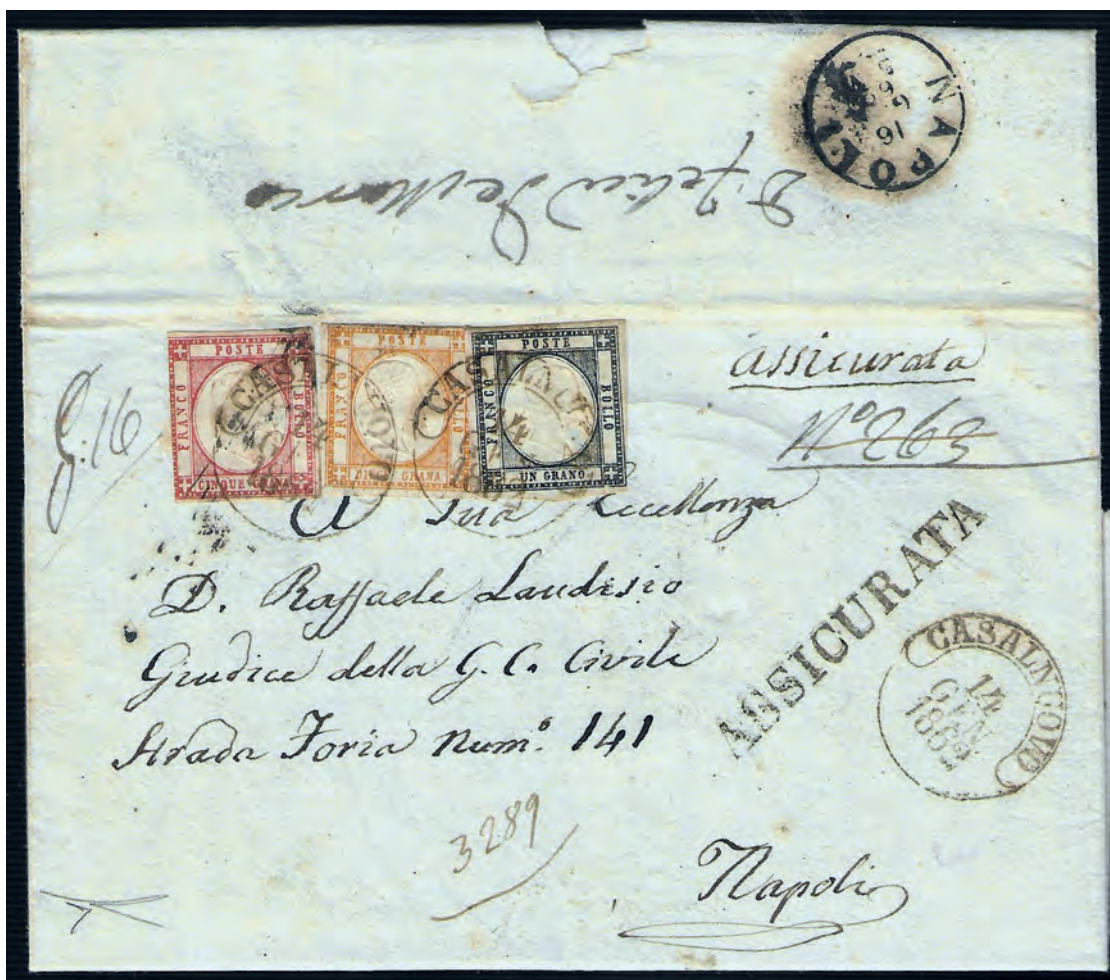 NAPOLI
16
G. 16
POSTE
FRANCO
BOLLO
CINQUE GRANA
POSTE
FRANCO
BOLLO
DIECI GRANA
POSTE
FRANCO
BOLLO
UN GRANO
assicurata
N.º 263
A Sua Eccellenza
D. Raffaele Landisio
Giudice della G. C. Civile
Strada Foria Num.º 141
Napoli
ASSICURATA
CASALNUOVO
14
GEN
1862
3289